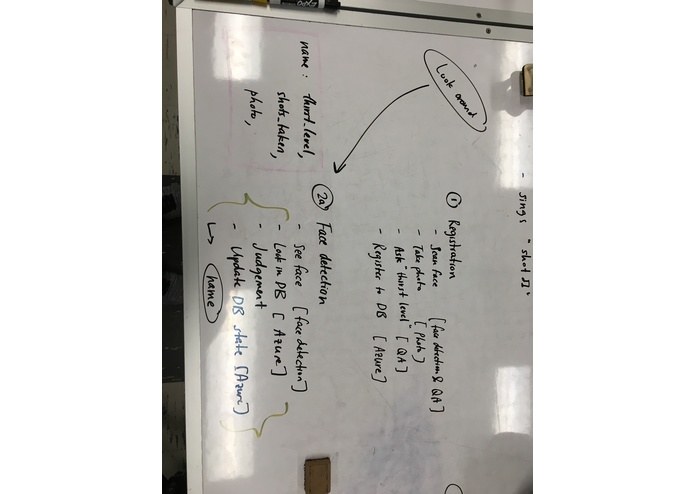 - sings "shot II"
Look around
① Registration
- Scan face [face detection & QA]
- Take photo [Photo]
- Ask "thirst level" [QA]
- Register to DB [Azure]
②a Face detection
- See face [face detection]
- Look in DB [Azure]
- Judgement
- Update DB state [Azure]
↳ name
name: thirst_level,
shots_taken,
photo,